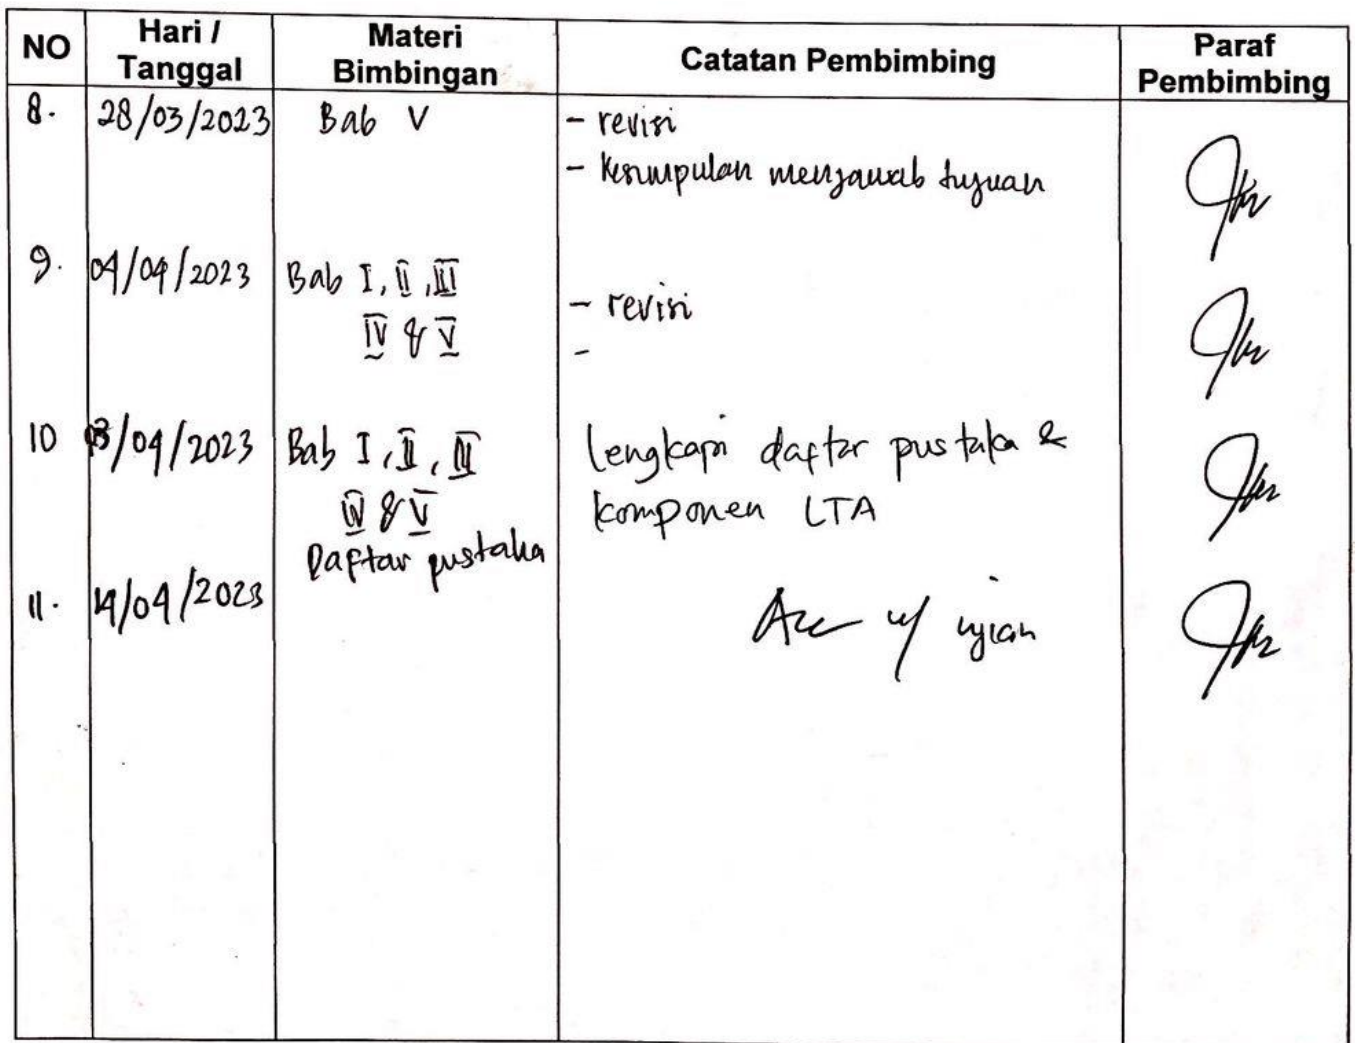 NO Hari / Tanggal Materi Bimbingan Catatan Pembimbing Paraf Pembimbing
8. 28/03/2023 Bab V - revisi
- Kesimpulan menjawab tujuan
9. 04/04/2023 Bab I, II, III
IV & V - revisi
-
10 /04/2023 Bab I, II, III lengkapi daftar pustaka &
IV & V komponen LTA
Daftar pustaka
11. 14/04/2023 Acc u/ ujian